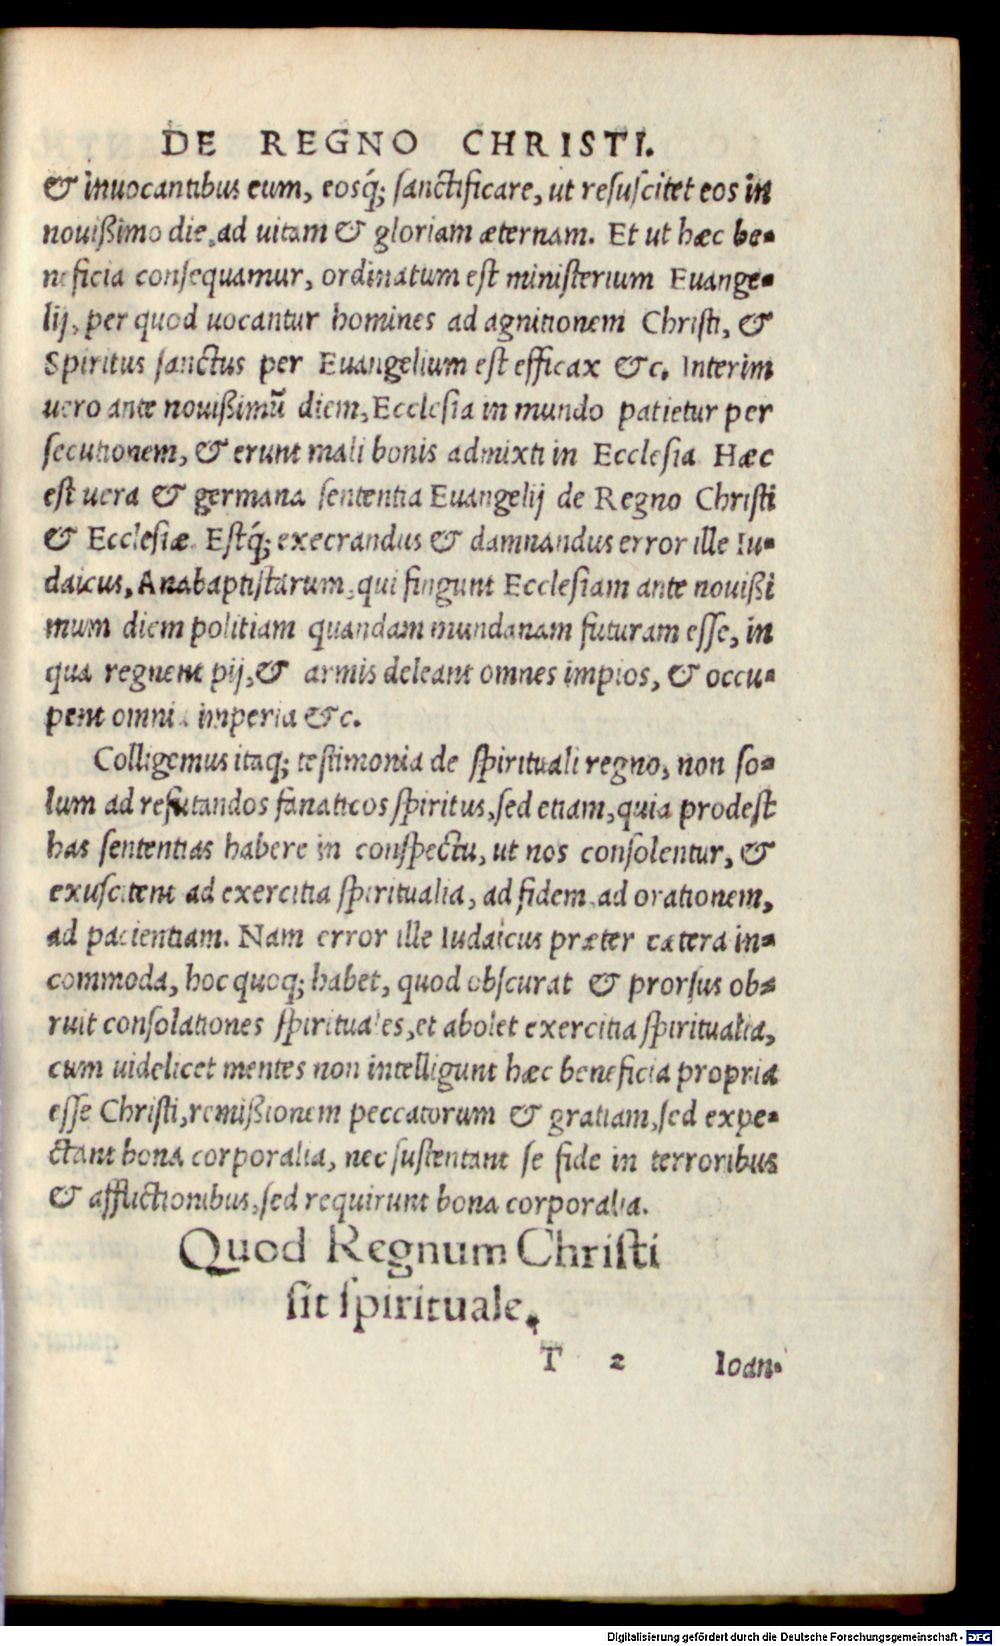 DE REGNO CHRISTI.
& inuocantibus eum, eosq́; sanctificare, ut resuscitet eos in
nouißimo die, ad uitam & gloriam æternam. Et ut hæc be-
neficia consequamur, ordinatum est ministerium Euange-
lij, per quod uocantur homines ad agnitionem Christi, &
Spiritus sanctus per Euangelium est efficax &c. Interim
uero ante nouißimū diem, Ecclesia in mundo patietur per
secutionem, & erunt mali bonis admixti in Ecclesia Hæc
est uera & germana sententia Euangelij de Regno Christi
& Ecclesiæ. Estq́; execrandus & damnandus error ille Iu-
daicus, Anabaptistarum, qui fingunt Ecclesiam ante nouißi
mum diem politiam quandam mundanam futuram esse, in
qua regnent pij, & armis deleant omnes impios, & occu-
pent omnia imperia &c.
Colligemus itaq; testimonia de spirituali regno, non so-
lum ad refutandos fanaticos spiritus, sed etiam, quia prodest
has sententias habere in conspectu, ut nos consolentur, &
exuscitent ad exercitia spiritualia, ad fidem, ad orationem,
ad pacientiam. Nam error ille Iudaicus præter cætera in-
commoda, hoc quoq; habet, quod obscurat & prorsus ob-
ruit consolationes spirituales, et abolet exercitia spiritualia,
cum uidelicet mentes non intelligunt hæc beneficia propria
esse Christi, remißionem peccatorum & gratiam, sed expe-
ctant bona corporalia, nec sustentant se fide in terroribus
& afflictionibus, sed requirunt bona corporalia.
Quod Regnum Christi
sit spirituale.
T 2 Ioan.
Digitalisierung gefördert durch die Deutsche Forschungsgemeinschaft - DFG